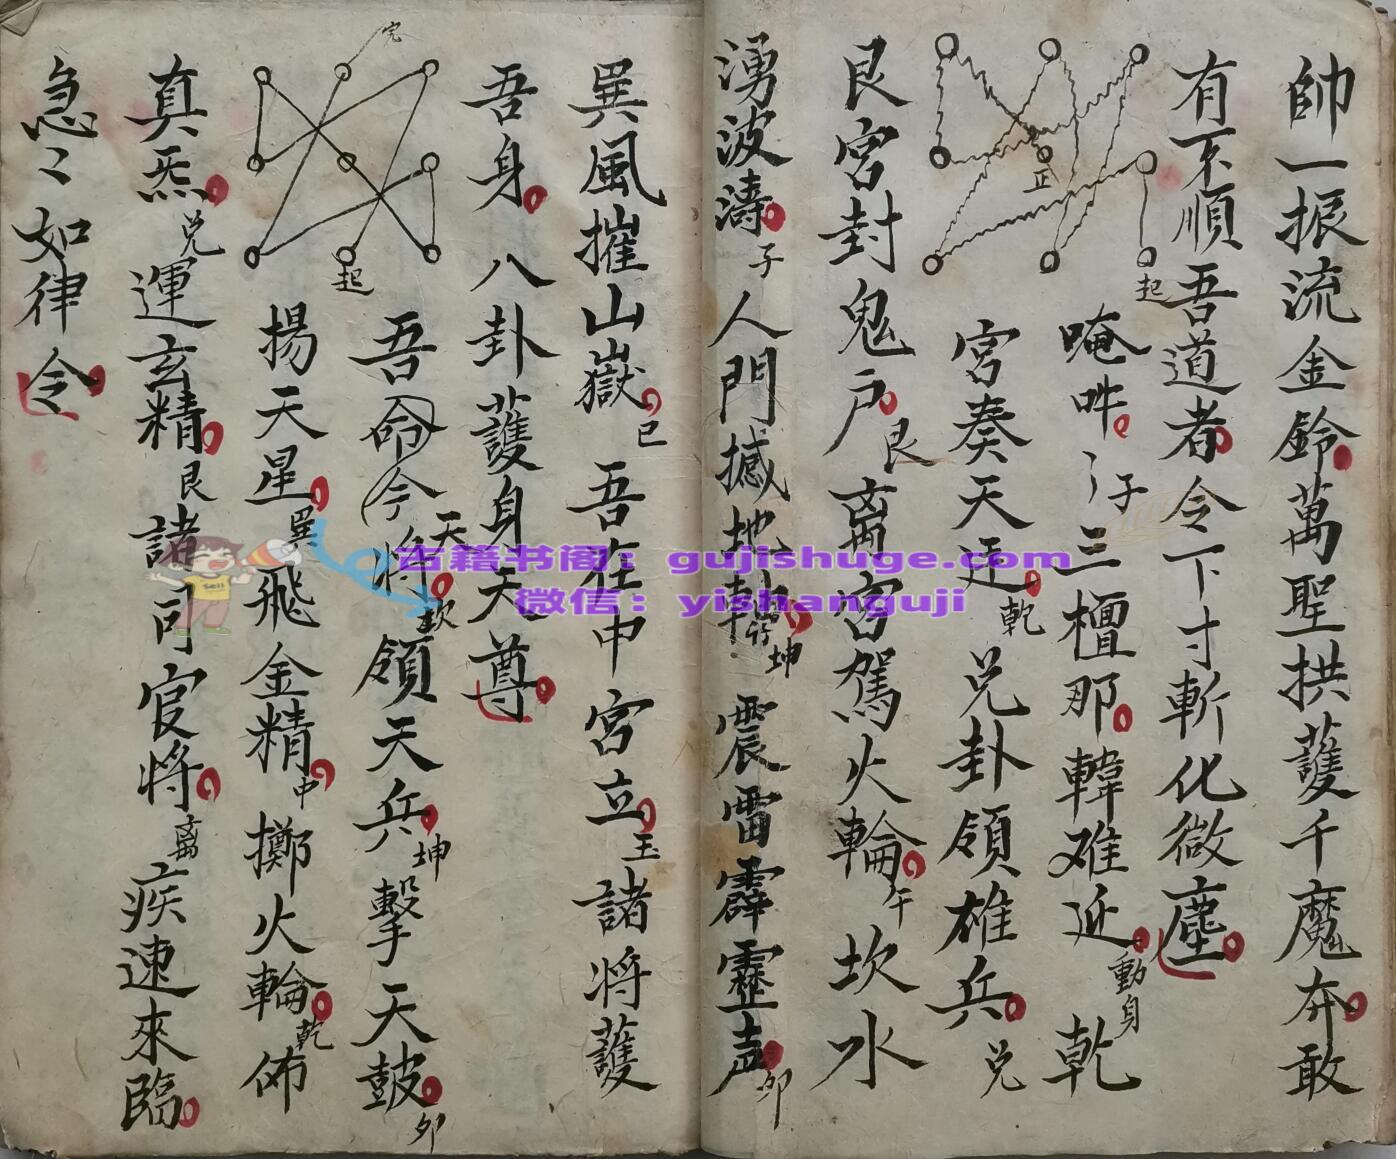 帥一振流金鈴萬聖拱護千魔奔敢
有不順吾道者令下寸斬化微塵
起
正
唵吽〻子三檀那韓难近動身乾
宮奏天廷乾兑卦領雄兵兑
艮宮封鬼户艮离宮駕火輪午坎水
湧波濤子人門撼地軸坤震雷霹靂声卯
巽風摧山嶽巳吾在中宮立玉諸将護
吾身八卦護身天尊
完
起
吾命今将天坎領天兵坤擊天鼓卯
揚天星巽飛金精中擲火輪乾佈
真炁兑運玄精艮諸司官将离疾速來臨
急〻如律令
古籍书阁：gujishuge.com
微信：yishanguji